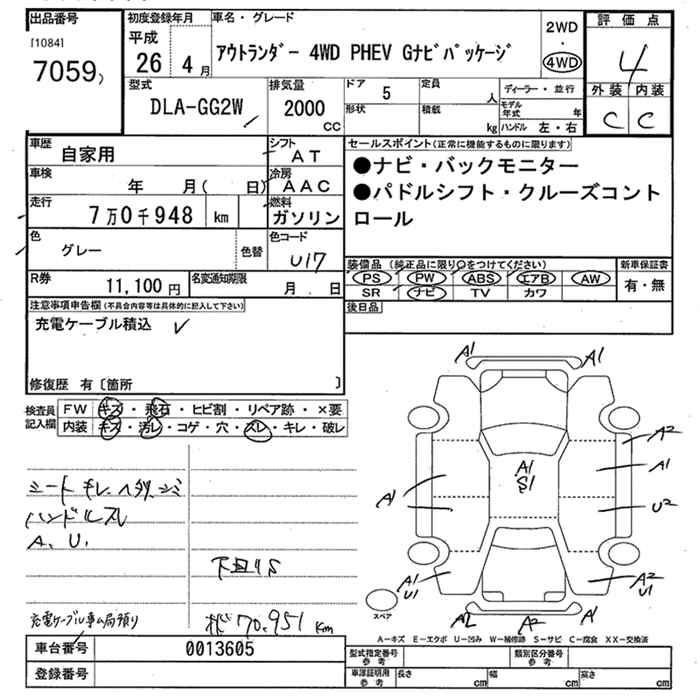 出品番号
[1084]
7059
初度登録年月
平成
26 4月
車名・グレード
アウトランダー 4WD PHEV Gナビパッケージ
2WD
・
4WD
評価点
4
外装 内装
C C
型式
DLA-GG2W
排気量
2000
CC
ドア
5
定員
人
形状
積載
kg
ディーラー・並行
モデル年式 年
ハンドル 左・右
車歴
自家用
シフト
AT
車検
年 月( 日)
冷房
AAC
走行
7万0千948 km
燃料
ガソリン
色
グレー
色替
色コード
U17
R券
11,100円
名変通知期限
月 日
セールスポイント(正常に機能するものに限ります)
●ナビ・バックモニター
●パドルシフト・クルーズコント
ロール
装備品 (純正品に限り○をつけてください)
PS PW ABS エアB AW
SR ナビ TV カワ
新車保証書
有・無
後日品
注意事項申告欄(不具合内容等は具体的に記入して下さい)
充電ケーブル積込
修復歴 有〔箇所 〕
検査員
記入欄
FW キズ・飛石・ヒビ割・リペア跡・×要
内装 キズ・汚レ・コゲ・穴・スレ・キレ・破レ
シート キレ、ヘタリ、シミ
ハンドルスレ
A、U、
下回りS
充電ケーブル車両局預り
70,951 km
A1 A1
A2
A1
A1
S1
A1
U2
A1
U1
A2
U1
A2 A2 A1
スペア
A−キズ E−エクボ U−凹み W−補修跡 S−サビ C−腐食 XX−交換済
車台番号
0013605
登録番号
型式指定番号
参考
類別区分番号
参考
車庫証明用
参考
長さ cm 幅 cm 高さ cm